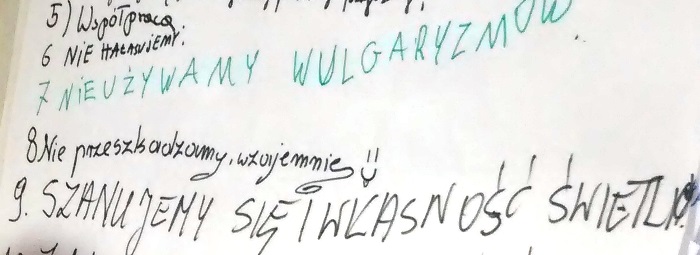 5) Współpraca.
6 NIE HAŁASUJEMY.
7 NIEUŻYWAMY WULGARYZMÓW.
8 Nie przeszkadzamy, wzajemnie
9. SZANUJEMY SIĘ I WŁASNOŚĆ